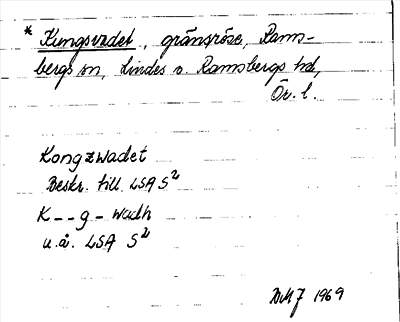 * Kungsvadet, gränsröse, Rams-
bergs sn, Lindes o. Ramsbergs hd,
Ör. l.
Kongzwadet
Beskr. till LSA S²
K--g-wadh
u.å. LSA S²
1969